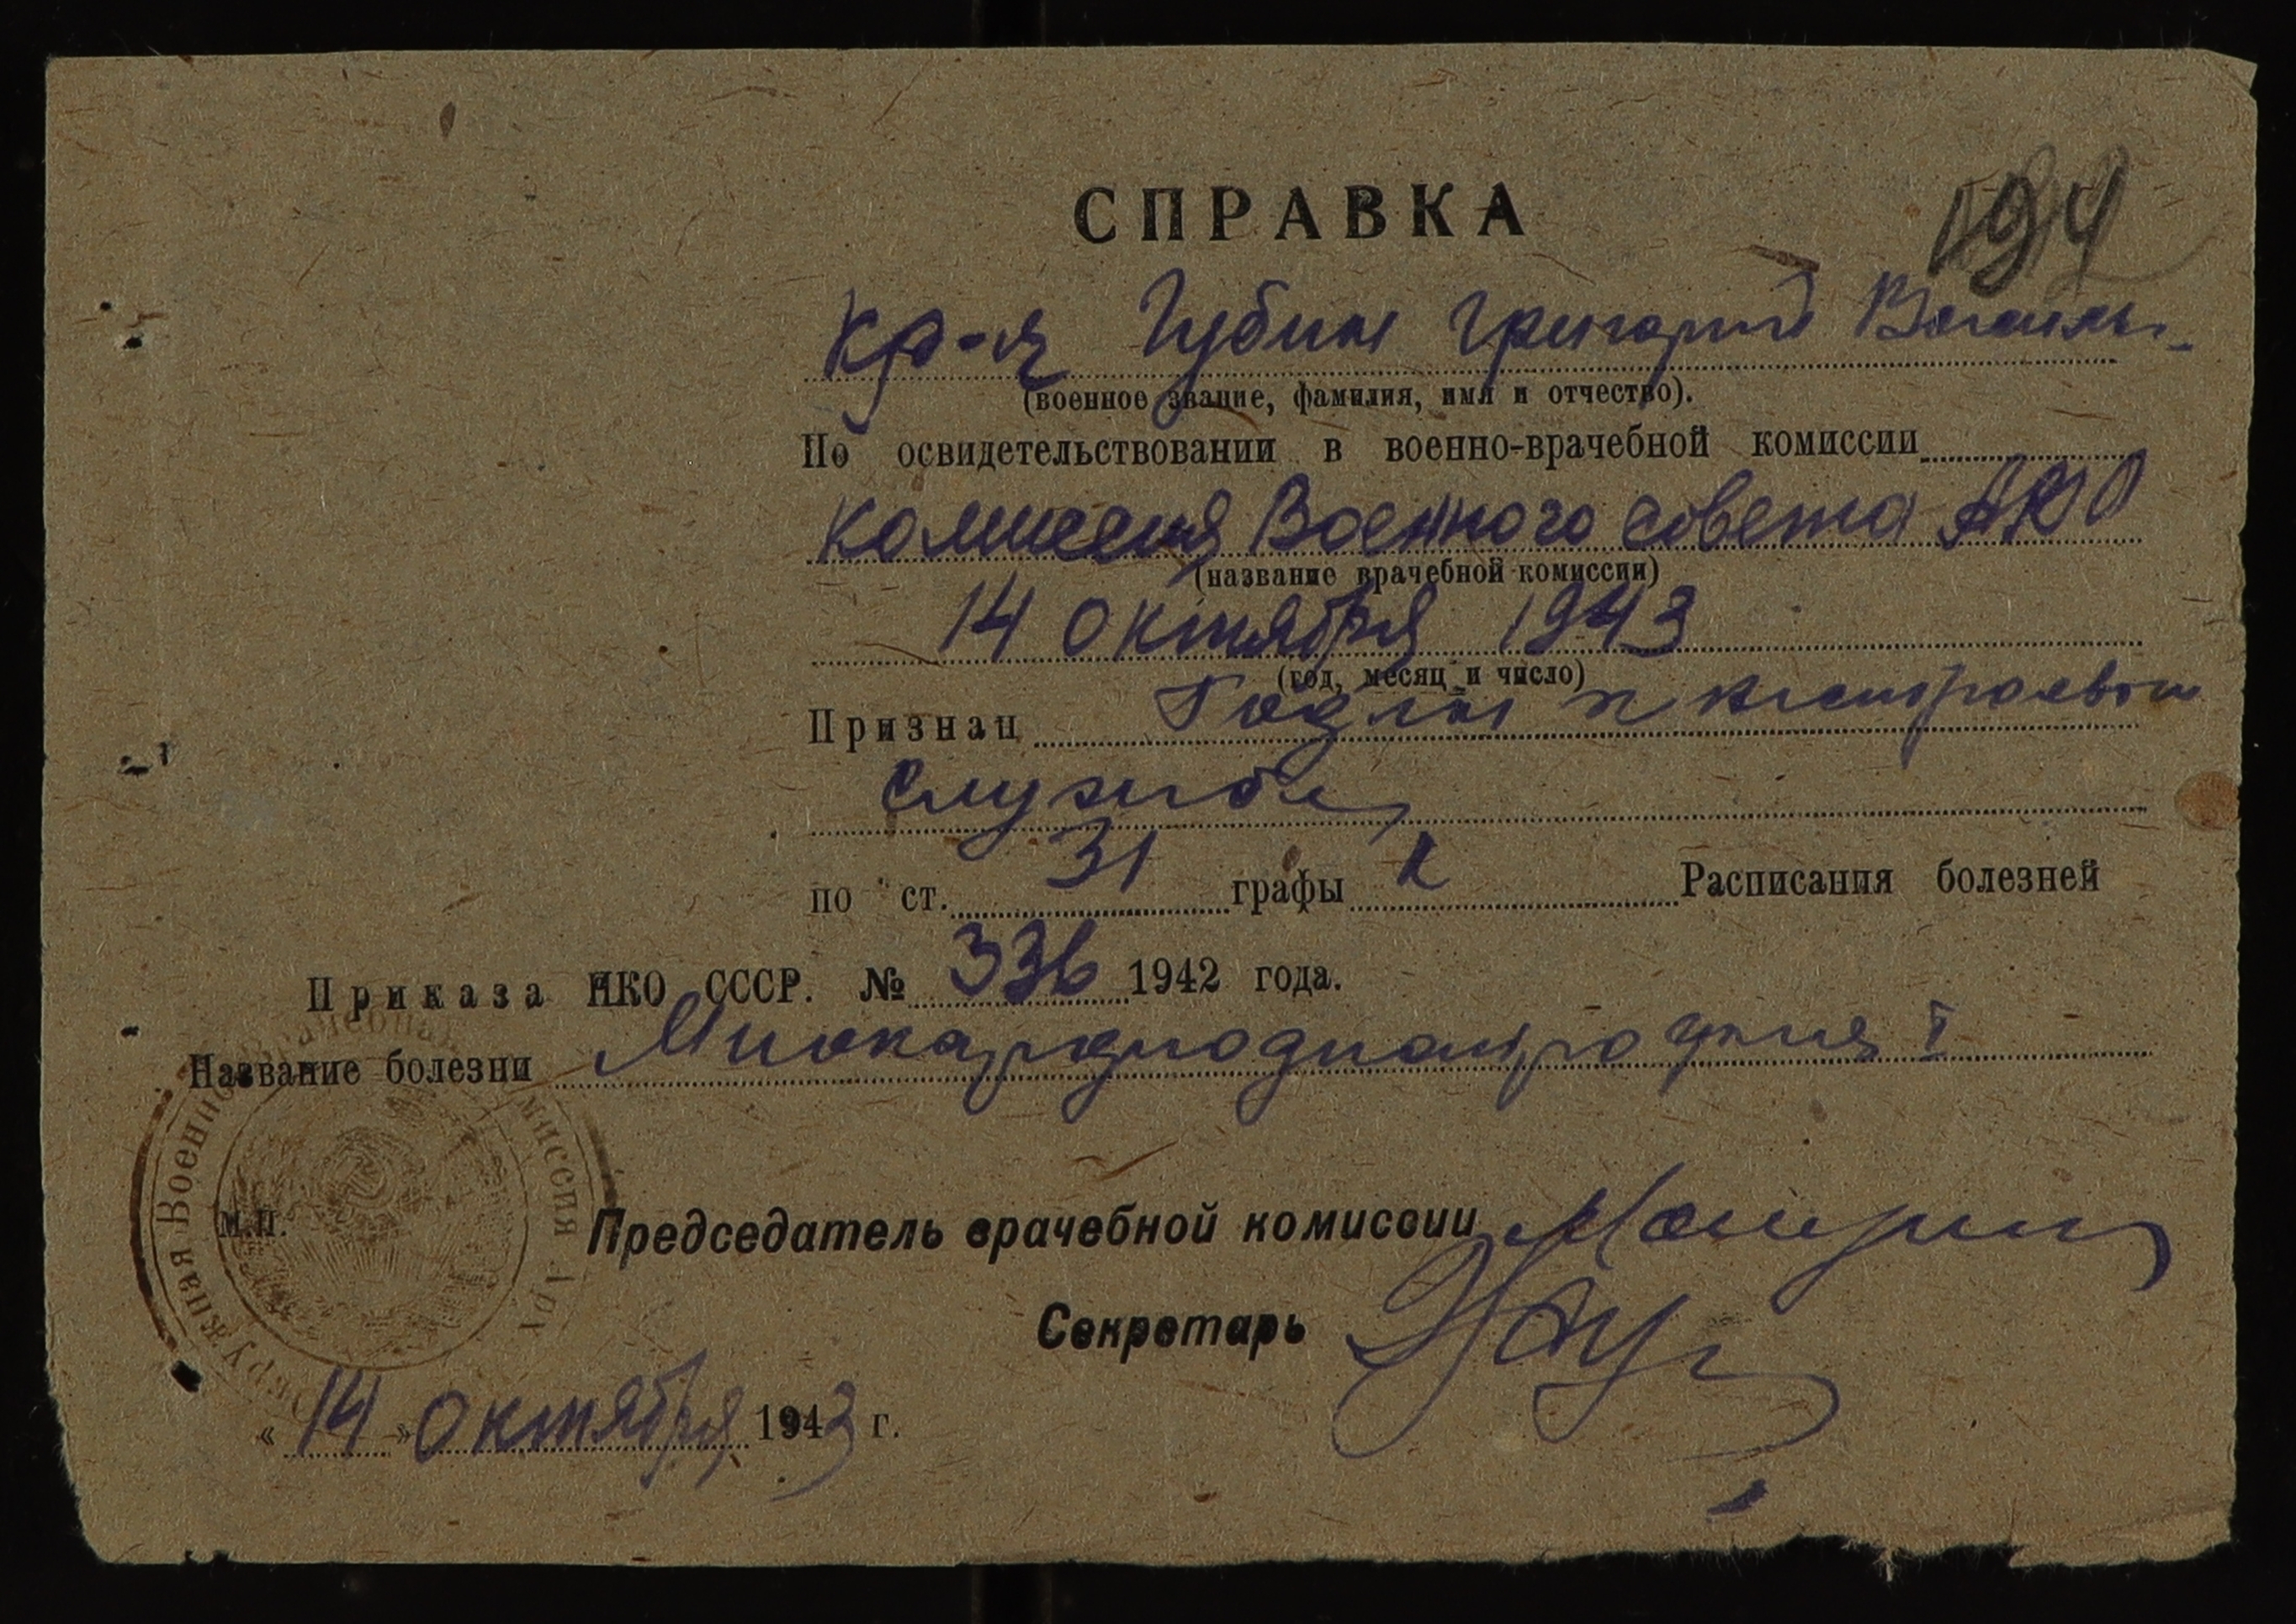 СПРАВКА
194
Кр-ц Губин Григорий Василь-
(военное звание, фамилия, имя и отчество).
По освидетельствовании в военно-врачебной комиссии
комиссия Военного совета
(название врачебной комиссии)
14 октября 1943
(год, месяц и число)
Признан Годен к нестроевой
службе
по ст. 31 графы Расписания болезней
Приказа НКО СССР. № 336 1942 года.
Название болезни Миокардиодистрофия I
Окружная Военно-врачебная комиссия Арх
М.П.
Председатель врачебной комиссии
Секретарь
«14» октября 1943 г.